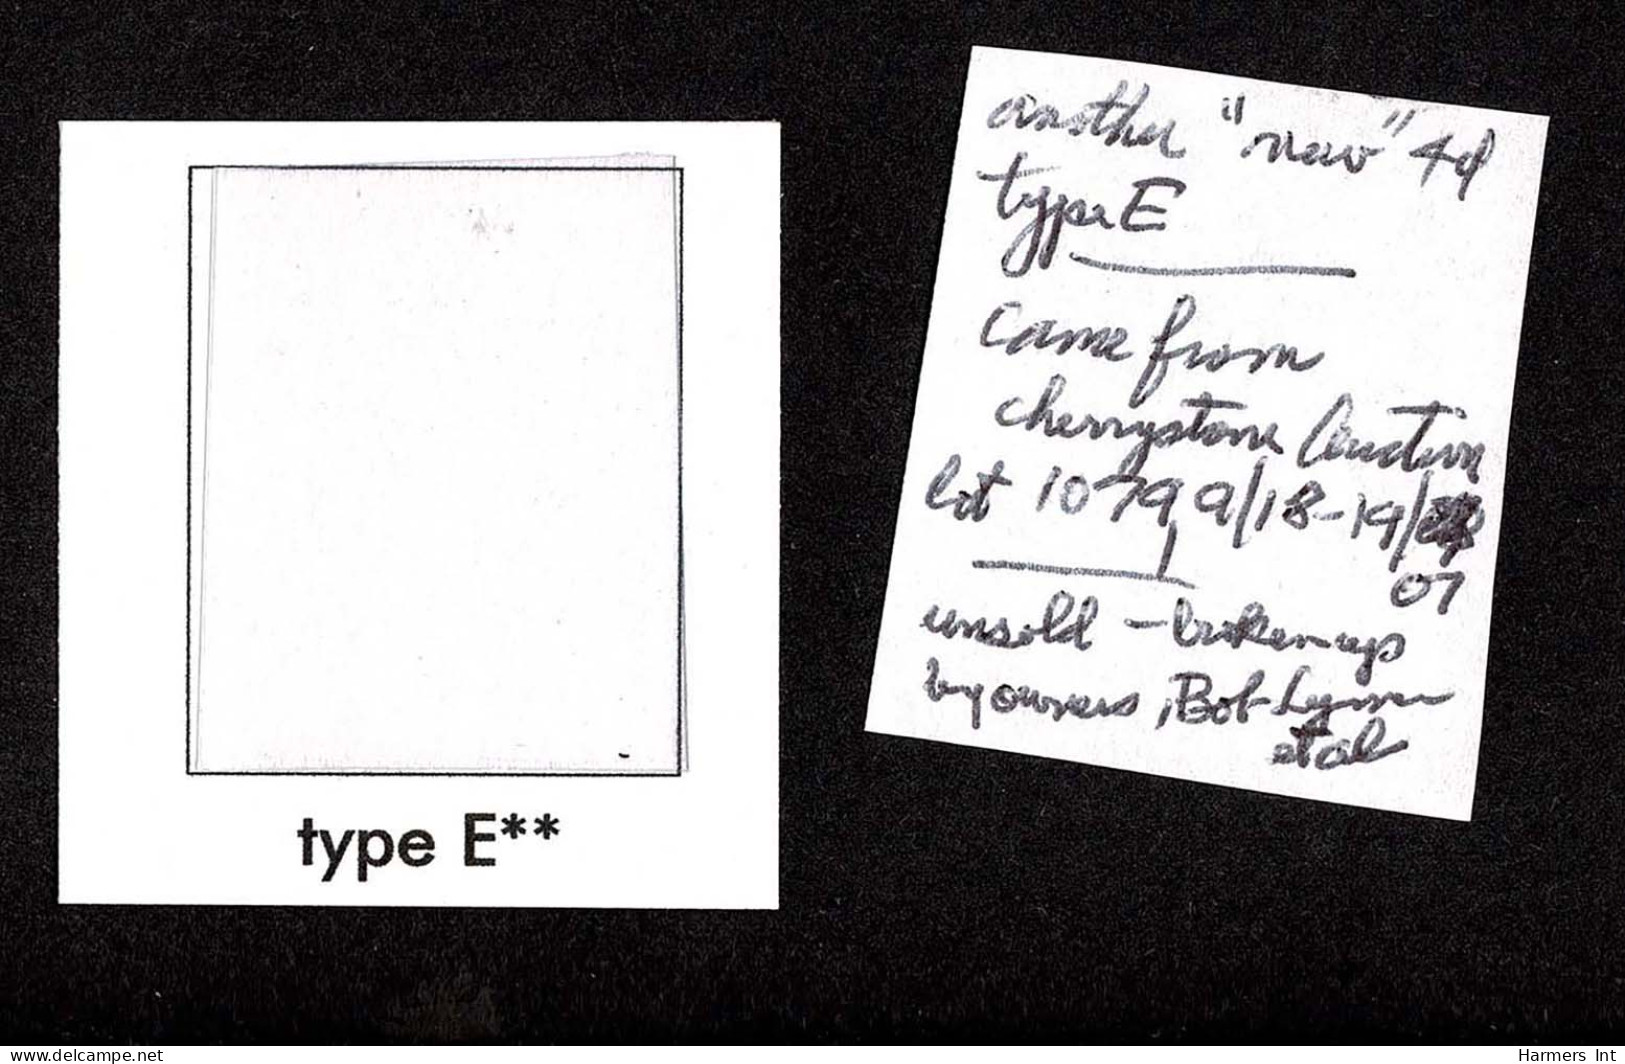 another "new" 4d
type E
came from
cherrystone Auction
lot 1079, 9/18-19/
07
unsold - broken up
by owners, Bob Lynn
et al
type E**
Harmers Int